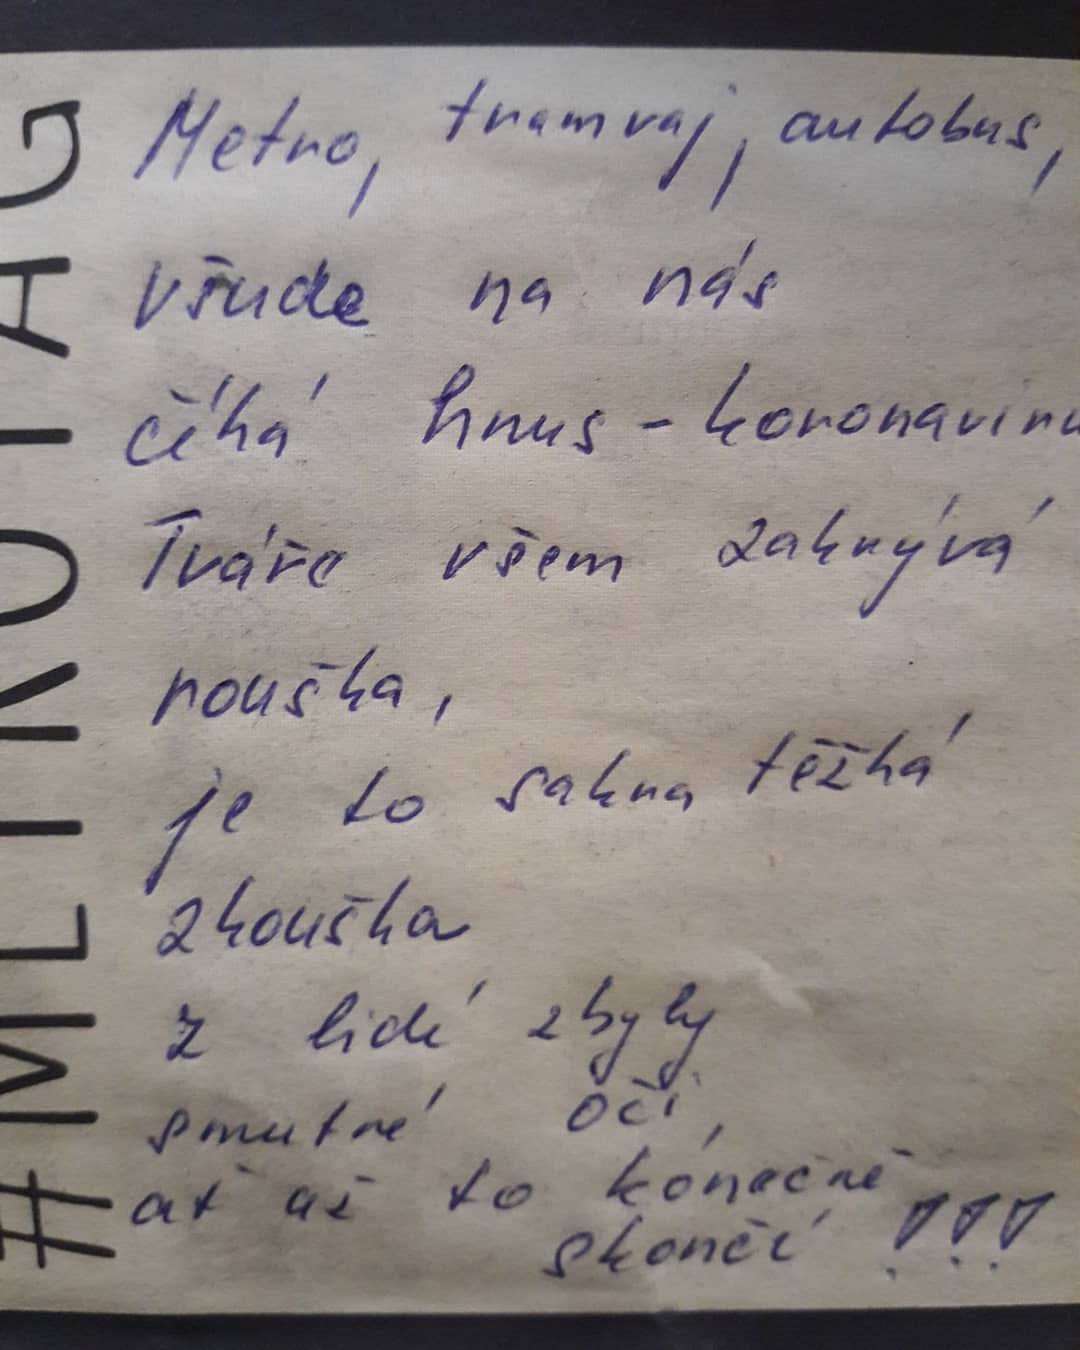 Metro, tramvaj, autobus,
všude na nás
číhá hnus - koronaviru
Tváře všem zakrývá
rouška,
je to sakra těžká
zkouška
z lidí zbyly
smutné oči,
ať až to konečně
skončí !!!
#MLTKOTAG